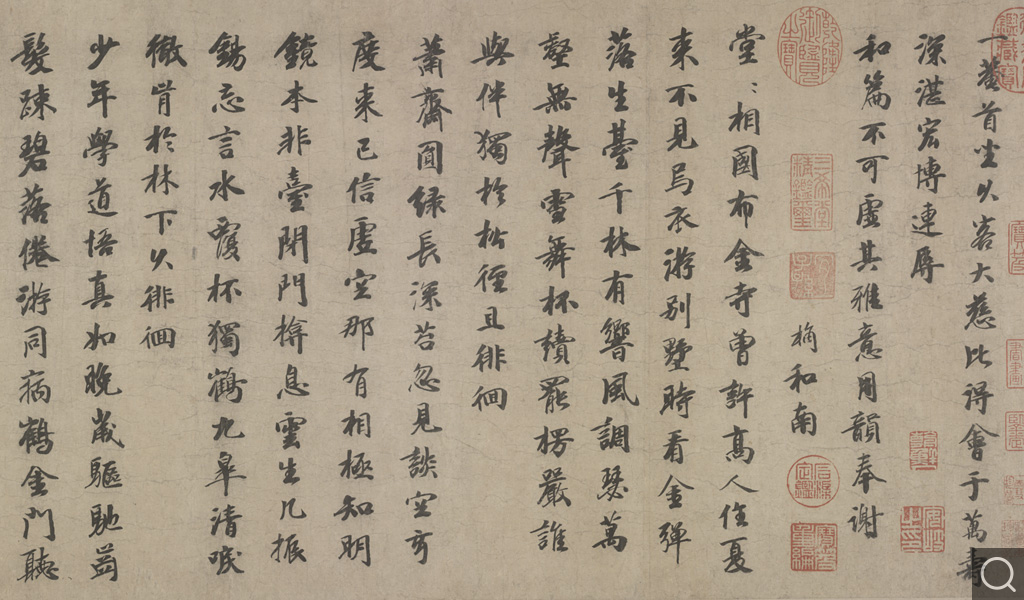 一菴首坐久客大慈比得會于萬壽
深湛宏博連辱
和篇不可虛其雅意用韻奉謝
和南
堂:相國布金寺曾許高人住夏
來不見烏衣游別墅時看金彈
落生臺千林有響風調瑟萬
壑無聲雪舞杯罷楞嚴誰
與伴獨於松徑且徘徊
蕭齋圓綠長深苔忽見談空
度來已信虛空那有相極知明
鏡本非臺閉門揜息雲生几振
錫忘言水覆杯獨鶴九皋清唳
徹肯於林下久徘徊
少年學道悟真如晚歲驅馳
髮疎碧落倦游同病鶴金門聽